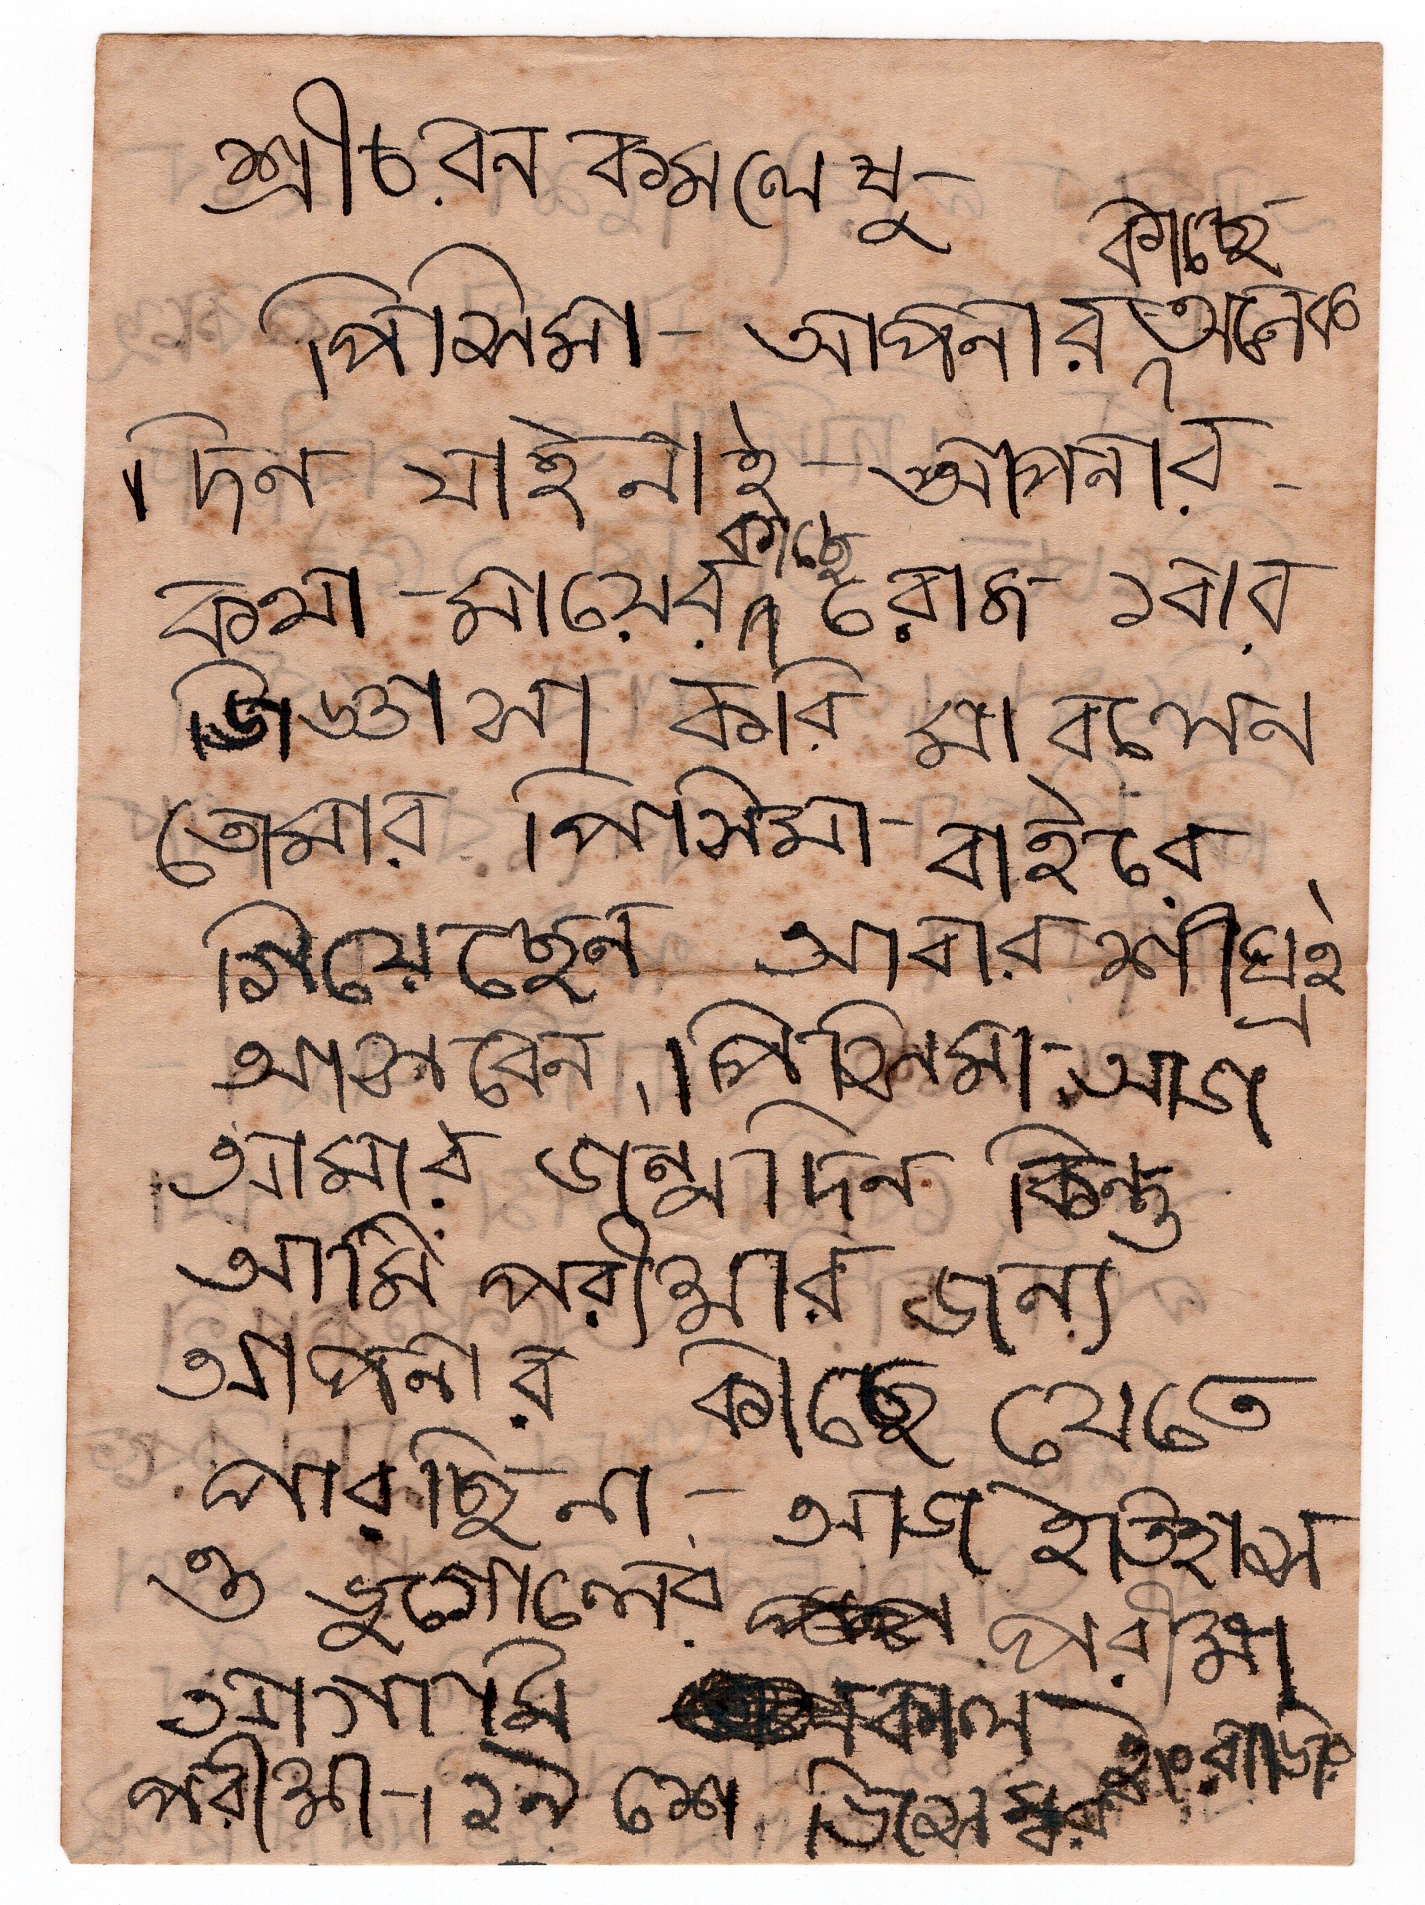 শ্রীচরন কমলেষু-
কাছে
পিসিমা- আপনার অনেক
দিন যাই নাই- আপনার-
কাছে
কথা-মায়ের রোজ ১বার
জিজ্ঞাসা করি মা বলেন
তোমার পিসিমা- বাইরে
গিয়েছেন আবার শীঘ্রই
আসবেন।। পিসিমা- আজ
আমার জন্মদিন কিন্তু
আমি পরীক্ষার জন্য
আপনার কাছে যেতে
পারছি না- আজ ইতিহাস
ও ভুগোলের পরীক্ষা
আগামি কাল ইংরাজির
পরীক্ষা-। ২৯ শে ডিসেম্বর